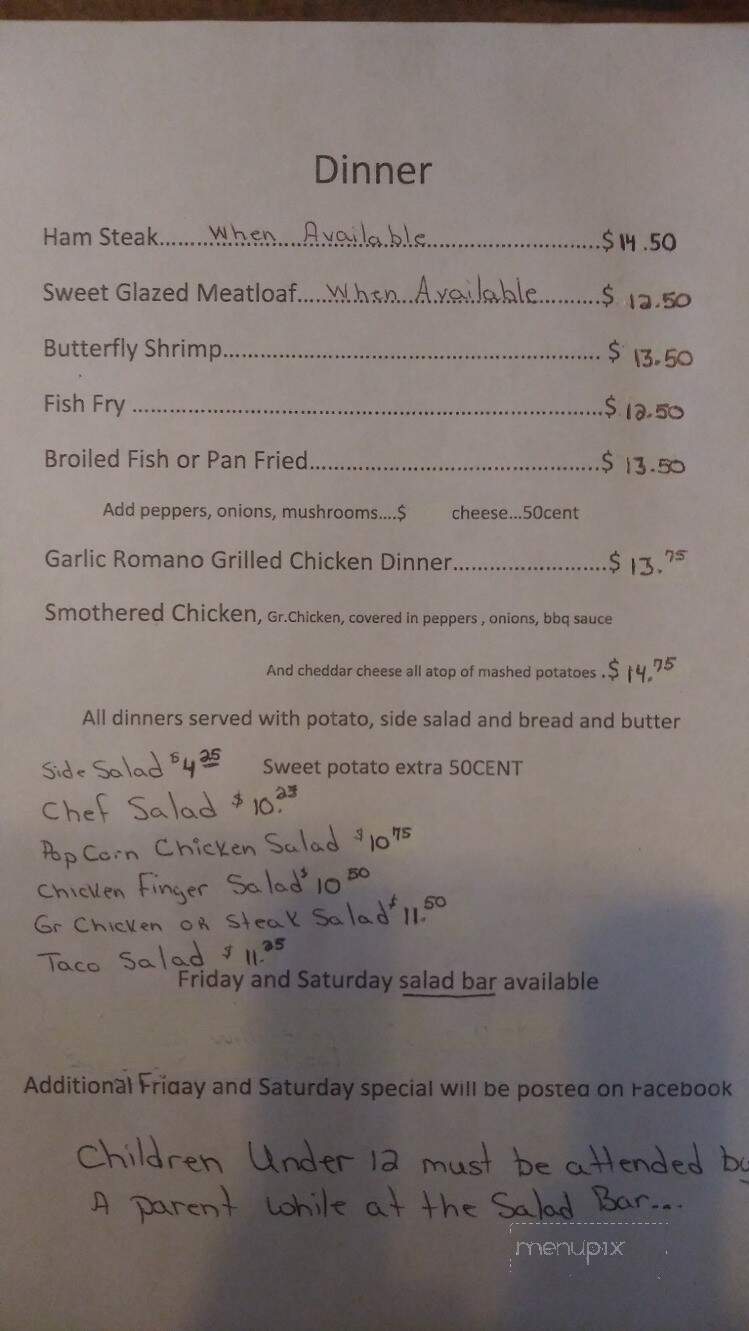 Dinner
Ham Steak.......When Available.............................$14.50
Sweet Glazed Meatloaf.....When Available..........$ 12.50
Butterfly Shrimp............................................................. $ 13.50
Fish Fry .............................................................................$ 12.50
Broiled Fish or Pan Fried...............................................$ 13.50
Add peppers, onions, mushrooms....$ cheese...50cent
Garlic Romano Grilled Chicken Dinner.........................$ 13.75
Smothered Chicken, Gr.Chicken, covered in peppers , onions, bbq sauce
And cheddar cheese all atop of mashed potatoes .$ 14.75
All dinners served with potato, side salad and bread and butter
Side Salad $4 25 Sweet potato extra 50CENT
Chef Salad $ 10.25
Pop Corn Chicken Salad $10 75
Chicken Finger Salad $10 50
Gr Chicken OR Steak Salad $11.50
Taco Salad $ 11.25
Friday and Saturday salad bar available
Additional Friday and Saturday special will be posted on Facebook
Children Under 12 must be attended by
A parent while at the Salad Bar...
menupix